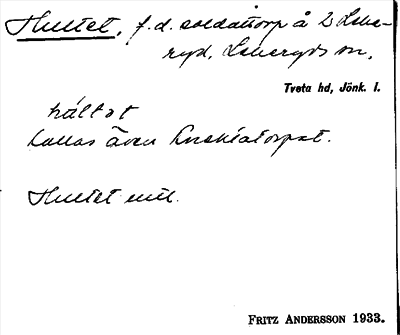 Hultet, f.d. soldattorp å 2 Leke-
ryd, Lekeryds sn.
Tveta hd, Jönk. l.
húltət
kallas även Knektatorpet.
Hultet
FRITZ ANDERSSON 1933.